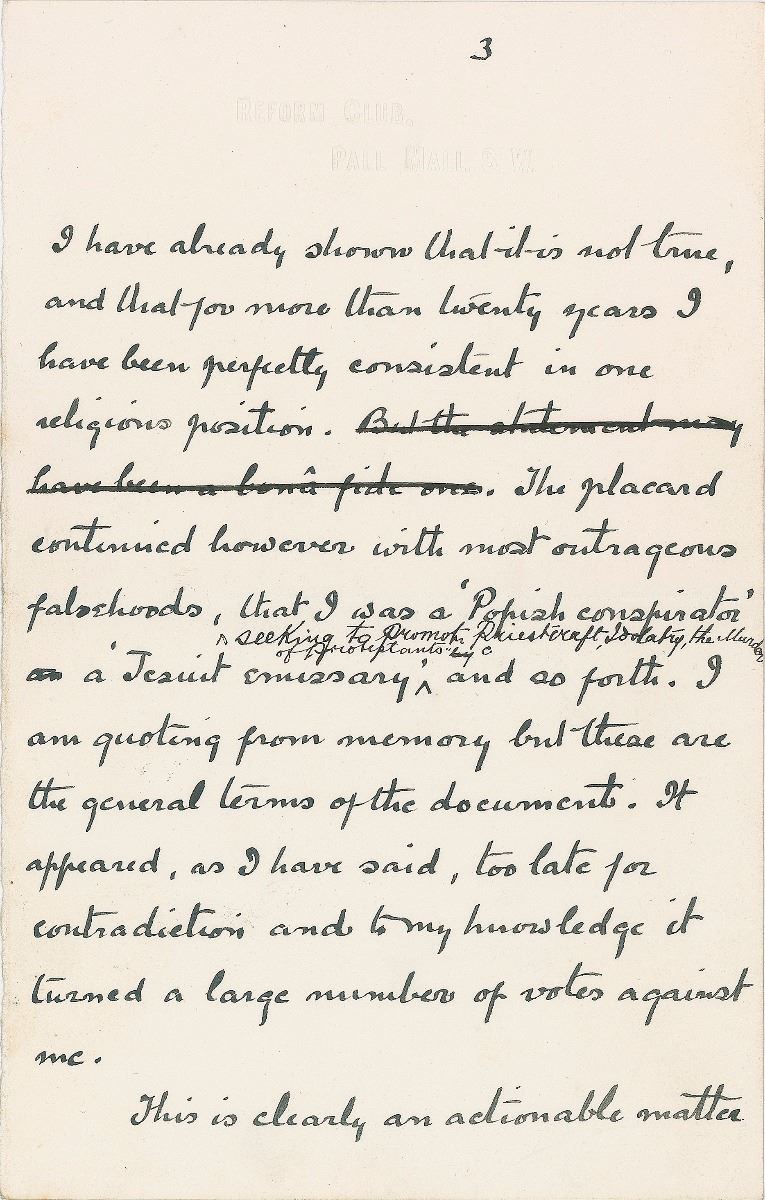 3
REFORM CLUB.
PALL MALL. S.W.
I have already shown that it is not true,
and that for more than twenty years I
have been perfectly consistent in one
religious position. But the statement may
have been a bonâ fide one. The placard
continued however with most outrageous
falsehoods, that I was a 'Popish conspirator'
seeking to promote Priestcraft, Idolatry, the Murder
of Protestants
a 'Jesuit emissary', and so forth. I
am quoting from memory but these are
the general terms of the document. It
appeared, as I have said, too late for
contradiction and to my knowledge it
turned a large number of votes against
me.
This is clearly an actionable matter